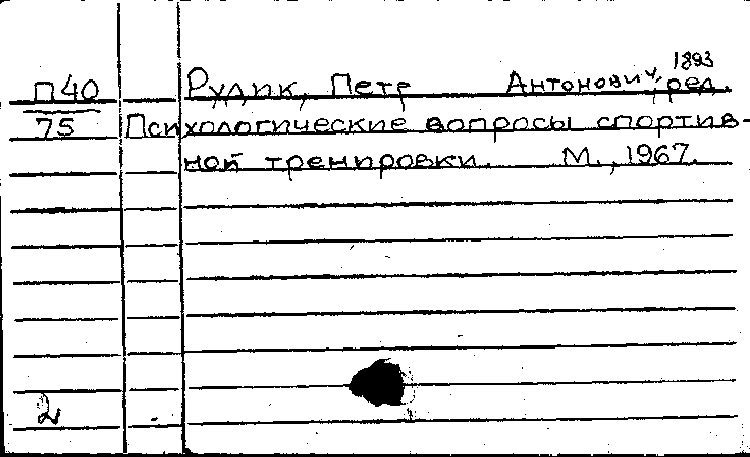 1893
П40 Рудик, Петр Антонович, ред.
75 Психологические вопросы спортив-
ной тренировки. М., 1967.
2